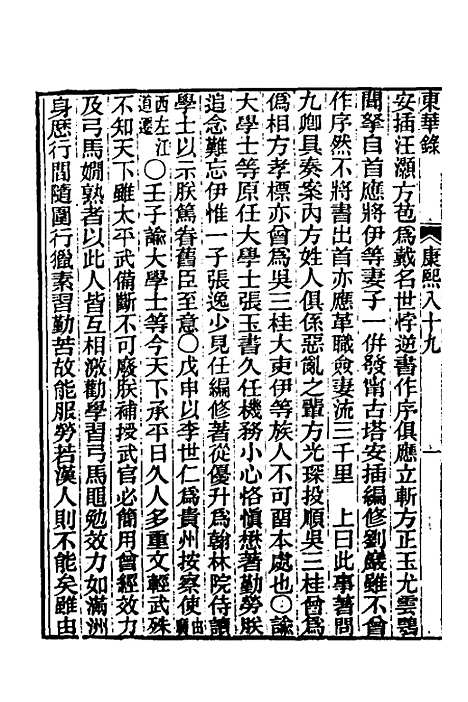 東華錄　康熙八十九　一
安插汪灝方苞爲戴名世悖逆書作序俱應立斬方正玉尤雲鶚
聞拏自首應將伊等妻子一併發甯古塔安插編修劉巖雖不曾
作序然不將書出首亦應革職僉妻流三千里　上曰此事著問
九卿具奏案內方姓人俱係惡亂之輩方光琛投順吳三桂曾爲
僞相方孝標亦曾爲吳三桂大吏伊等族人不可留本處也〇諭
大學士等原任大學士張玉書久任機務小心恪愼懋著勤勞朕
追念難忘伊惟一子張逸少見任編修著從優升爲翰林院侍讀
學士以示朕篤眷舊臣至意〇戊申以李世仁爲貴州按察使由廣
西左江道遷〇壬子諭大學士等今天下承平日久人多重文輕武殊
不知天下雖太平武備斷不可廢朕補授武官必簡用曾經效力
及弓馬嫺熟者以此人皆互相激勸學習弓馬黽勉效力如滿洲
身歷行間隨圍行獵素習勤苦故能服勞若漢人則不能矣雖由